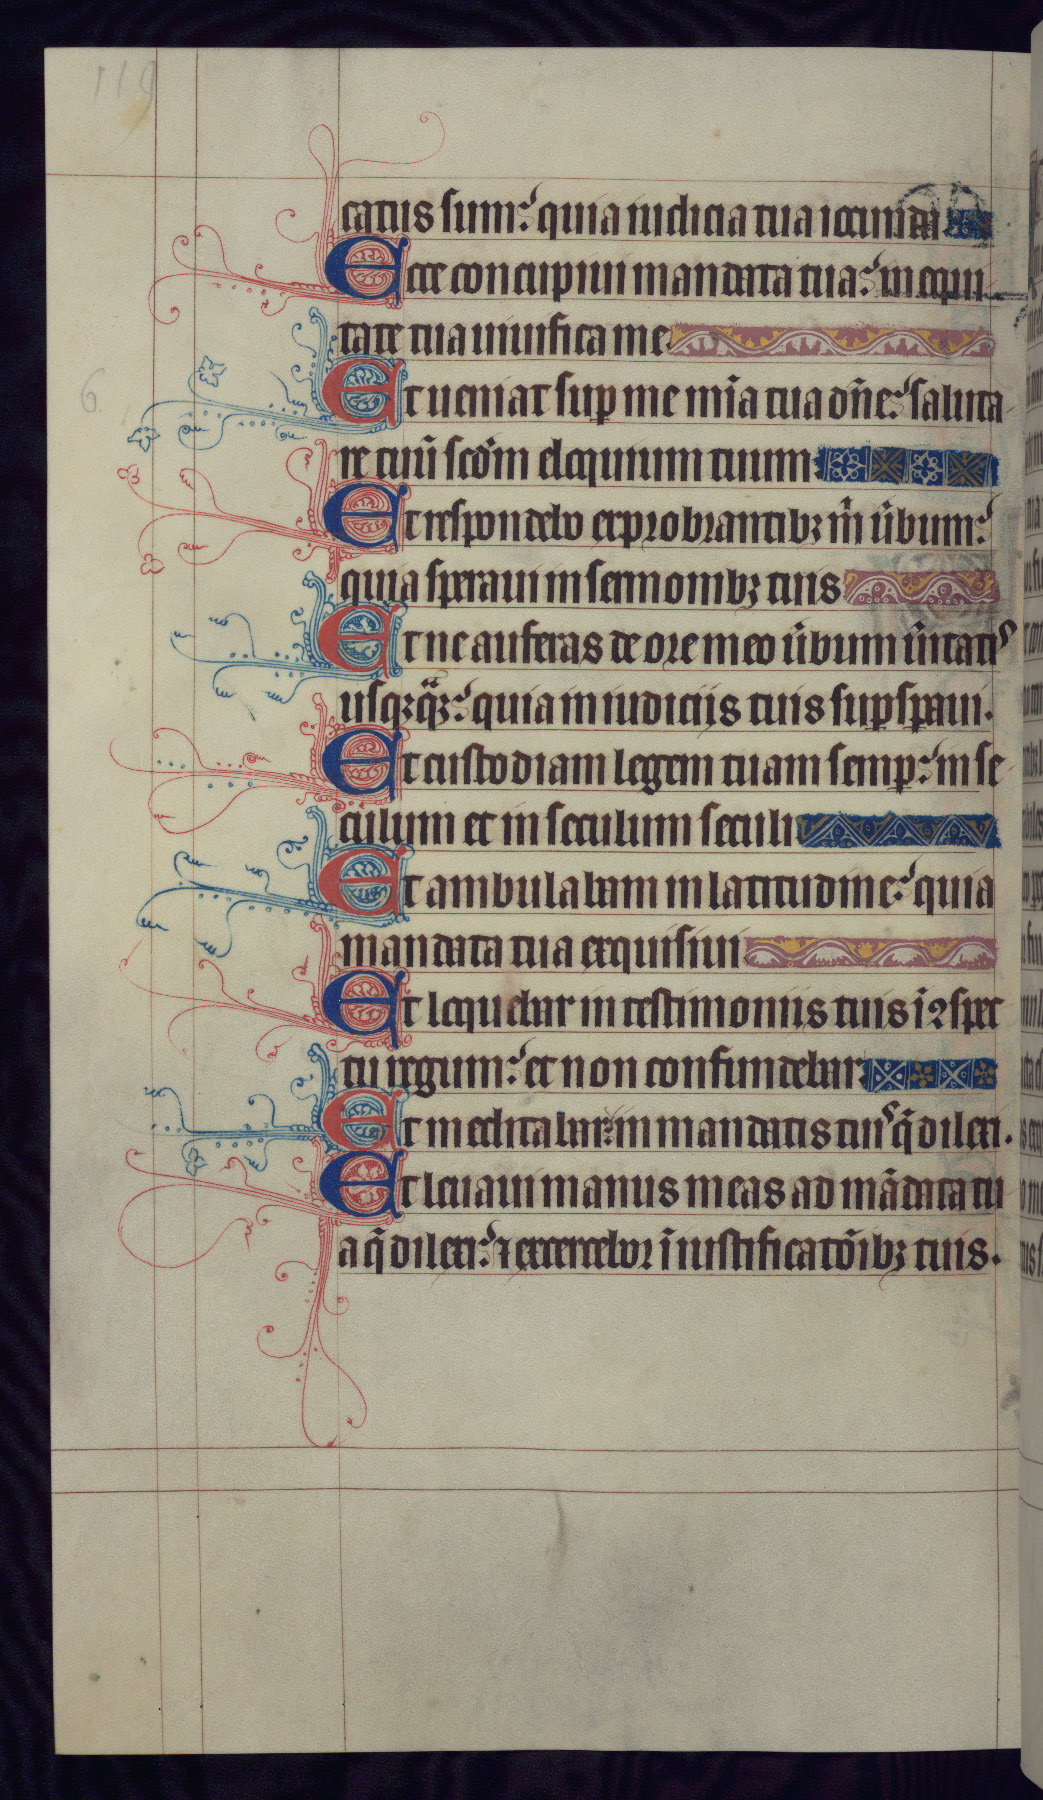 119
catus sum: quia iudicia tua iocunda
Ecce concupiui mandata tua: in equi
tate tua uiuifica me
Et ueniat sup me mīa tua dn̄e: saluta
6
re tuū scd̄m eloquium tuum
Et respondebo exprobrantibꝫ m̄ ūbum:
quia speraui in sermonibꝫ tuis
Et ne auferas de ore meo ūbum ūitatis
usqꝫq̄ꝫ: quia in iudiciis tuis supspaui.
Et custodiam legem tuam semp: in se
culum et in seculum seculi
Et ambulabam in latitudine: quia
mandata tua exquisiui
Et loquebar in testimoniis tuis ī ꝯspec
tu regum: et non confundebar
Et meditabar in mandatis tuis q̄ dilexi.
Et leuaui manus meas ad mādata tu
a q̄ dilexi: ⁊ exercebor ī iustificatōibꝫ tuis.